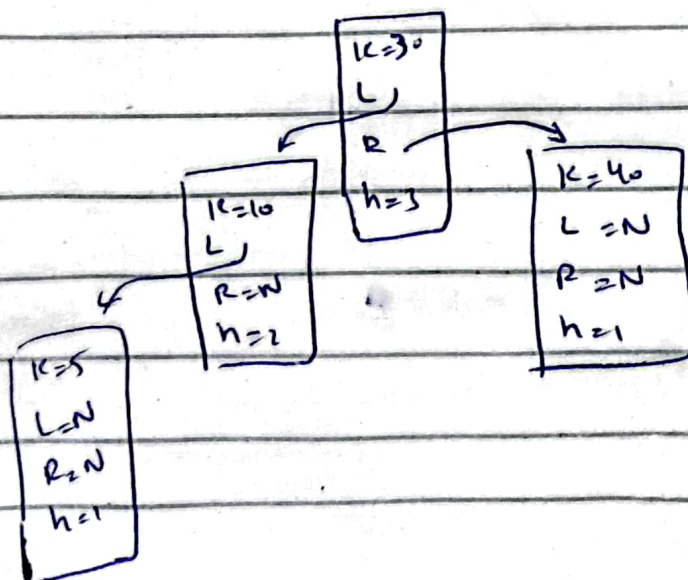 K=30
L
R
h=3
K=10
L
R=N
h=2
K=40
L=N
R=N
h=1
K=5
L=N
R=N
h=1